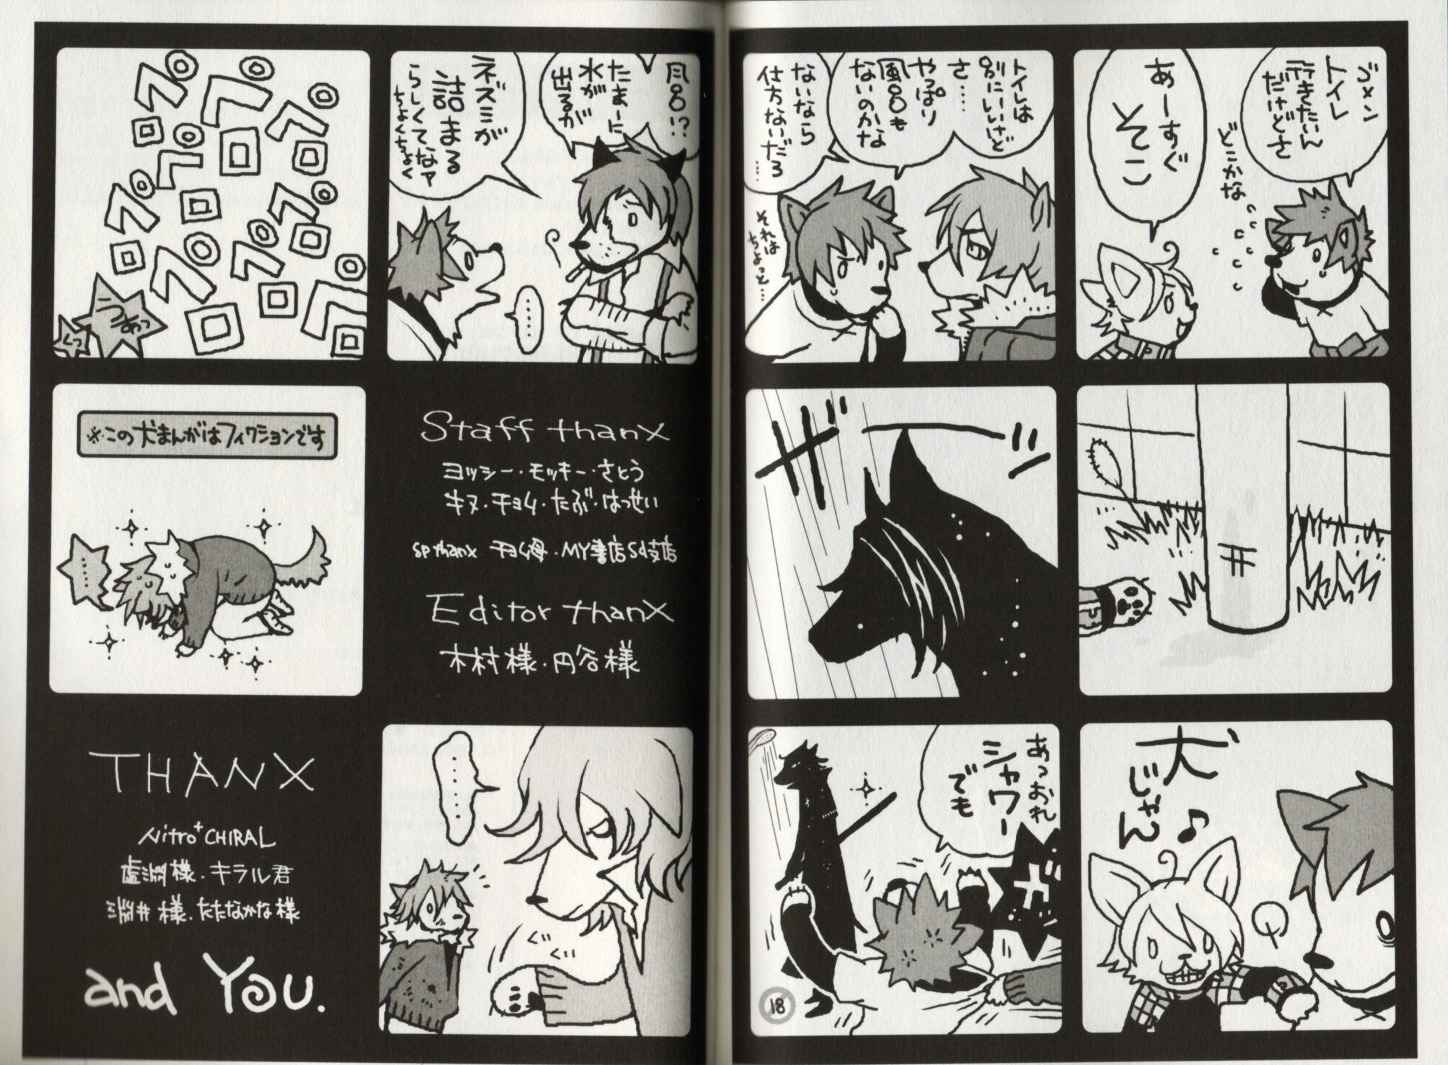 ゴメン
トイレ
行きたいん
だけどさ
どこかな
あーすぐ
そこ
井
犬
じゃん♪
トイレは
別にいいけど
さ……
やっぱり
風呂も
ないのかな
ないなら
仕方ないだろ
……
それは
ちょっと…
ザーッ
あっおれ
シャワー
でも
ガ
18
風呂!?
たまーに
水が
出るが
ネズミが
詰まる
らしくてなァ
ちょくちょく
……
……
くいくい
ペロペロペロペロペロペロペロ
うあっ
くっ
※この犬まんがはフィクションです
……
Staff thanX
ヨッシー・モッキー・さとう
キヌ・チョム・たぶ・はっせい
sp thanx チョム母・MY書店Sd支店
Editor thanX
木村様・円谷様
THANX
Nitro+CHIRAL
虚淵様・キラル君
淵井様・たたなかな様
and You.